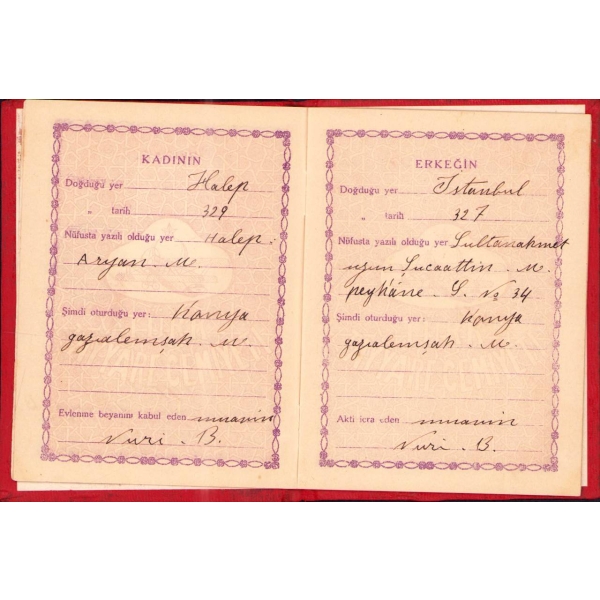 KADININ
Doğduğu yer Halep
„ tarih 329
Nüfusta yazılı olduğu yer Halep.
Aryan. M.
Şimdi oturduğu yer: Konya
gazialemşah. M.
Evlenme beyanını kabul eden muavin
Nuri. B.
ERKEĞİN
Doğduğu yer İstanbul
„ tarih 327
Nüfusta yazılı olduğu yer Sultanahmet
uzun Şucaattin. M.
peykâne. S. No 34
Şimdi oturduğu yer: Konya
gazialemşah. M.
Akti icra eden muavin
Nuri. B.